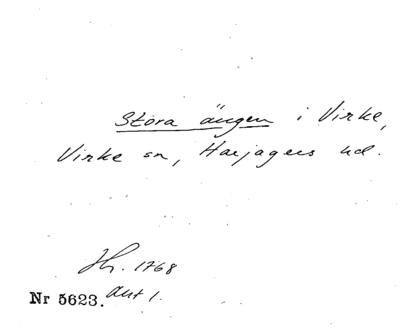 Stora ängen i Virke,
Virke sn, Harjagers hd.
Hr. 1768
Nr 5623. akt 1.